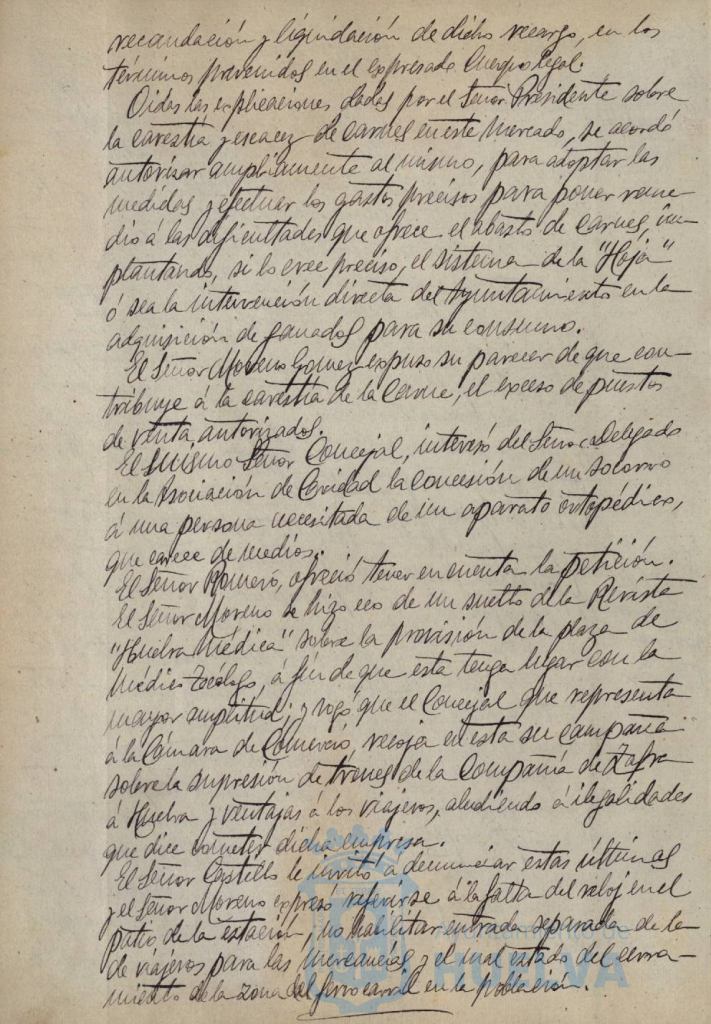 recaudación y liquidación de dicho recargo, en los
términos prevenidos en el expresado Cuerpo legal.
Oidas las explicaciones dadas por el Señor Presidente sobre
la carestía y escasez de carnes en este Mercado, se acordó
autorizar ampliamente al mismo, para adoptar las
medidas y efectuar los gastos precisos para poner reme-
dio á las dificultades que ofrece el abasto de carnes, im-
plantando, si lo cree preciso, el sistema de la "Hoja"
ó sea la intervención directa del Ayuntamiento en la
adquisición de ganados para su consumo.
El Señor Moreno Gomez expuso su parecer de que con-
tribuye á la carestía de la Carne, el exceso de puestos
de venta, autorizados.
El mismo Señor Concejal, interesó del Señor Delegado
en la Asociación de Caridad la concesión de un socorro
á una persona necesitada de un aparato ortopédico,
que carece de medios.
El Señor Romero, ofreció tener en cuenta la petición.
El Señor Moreno se hizo eco de un suelto de la Revista
"Huelva Médica" sobre la provisión de la plaza de
Médico Tocólogo, á fin de que esta tenga lugar con la
mayor amplitud; y rogó que el Concejal que representa
á la Cámara de Comercio, recoja en esta su campaña
sobre la supresión de trenes de la Compañía de Zafra
á Huelva y ventajas á los viajeros, aludiendo á ilegalidades
que dice cometer dicha empresa.
El Señor Castillo le invitó á denunciar estas últimas
y el Señor Moreno expresó referirse á la falta del reloj en el
patio de la estación, no habilitar entrada separada de la
de viajeros para las mercancías y el mal estado del cerra-
miento de la zona del ferrocarril en la población.
HUELVA